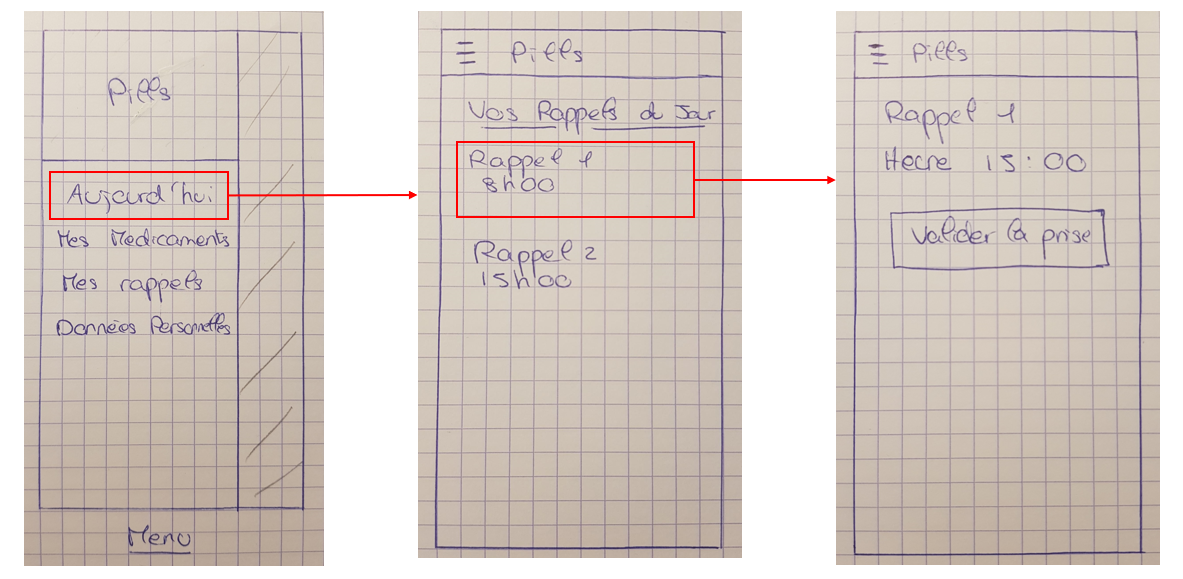 Pills
Aujourd'hui
Mes Medicaments
Mes rappels
Données Personnelles
Menu
Pills
Vos Rappels du Jour
Rappel 1
8h00
Rappel 2
15h00
Pills
Rappel 1
Heure 15:00
Valider la prise